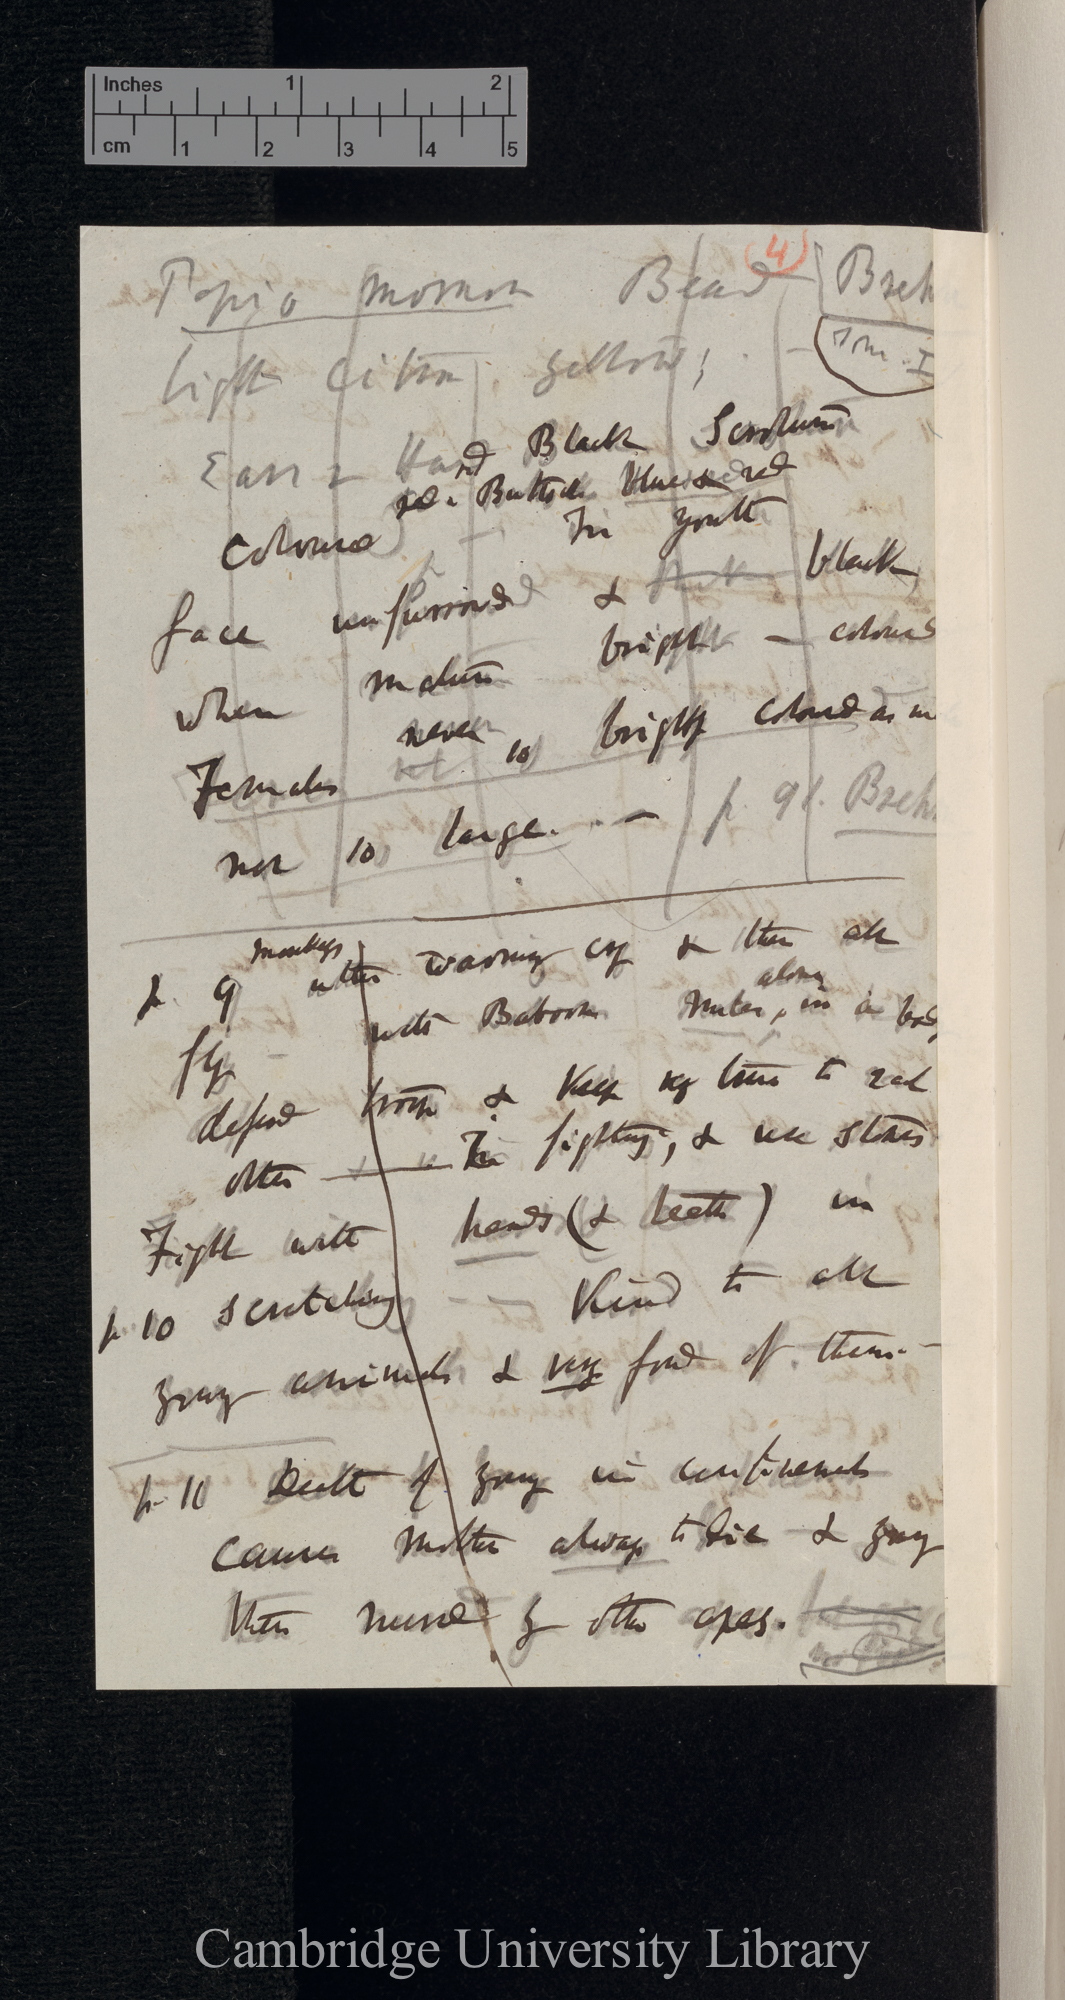 Inches 1 2
cm 1 2 3 4 5
4
Papio mormon Beard Breh
Tom. I
light citron yellow;
Ears & Hand Black Scrotum
red. Buttocks blue & red
coloured — In youth
face unfurrowed & black,
when mature bright – coloured
Females never so bright coloured as m
not so large. — p. 91. Breh
p. 9 monkeys utter warning cry & then all
fly – with Baboons males, alone in a body
defend troop & keep by turns to each
other — In fighting, & use stones
Fight with hands (& teeth) in
p 10 scratching — Kind to all
young animals & very fond of them. –
p. 11 Death of young in confinement
causes mother always to die & young
then nursed by other apes.
Cambridge University Library